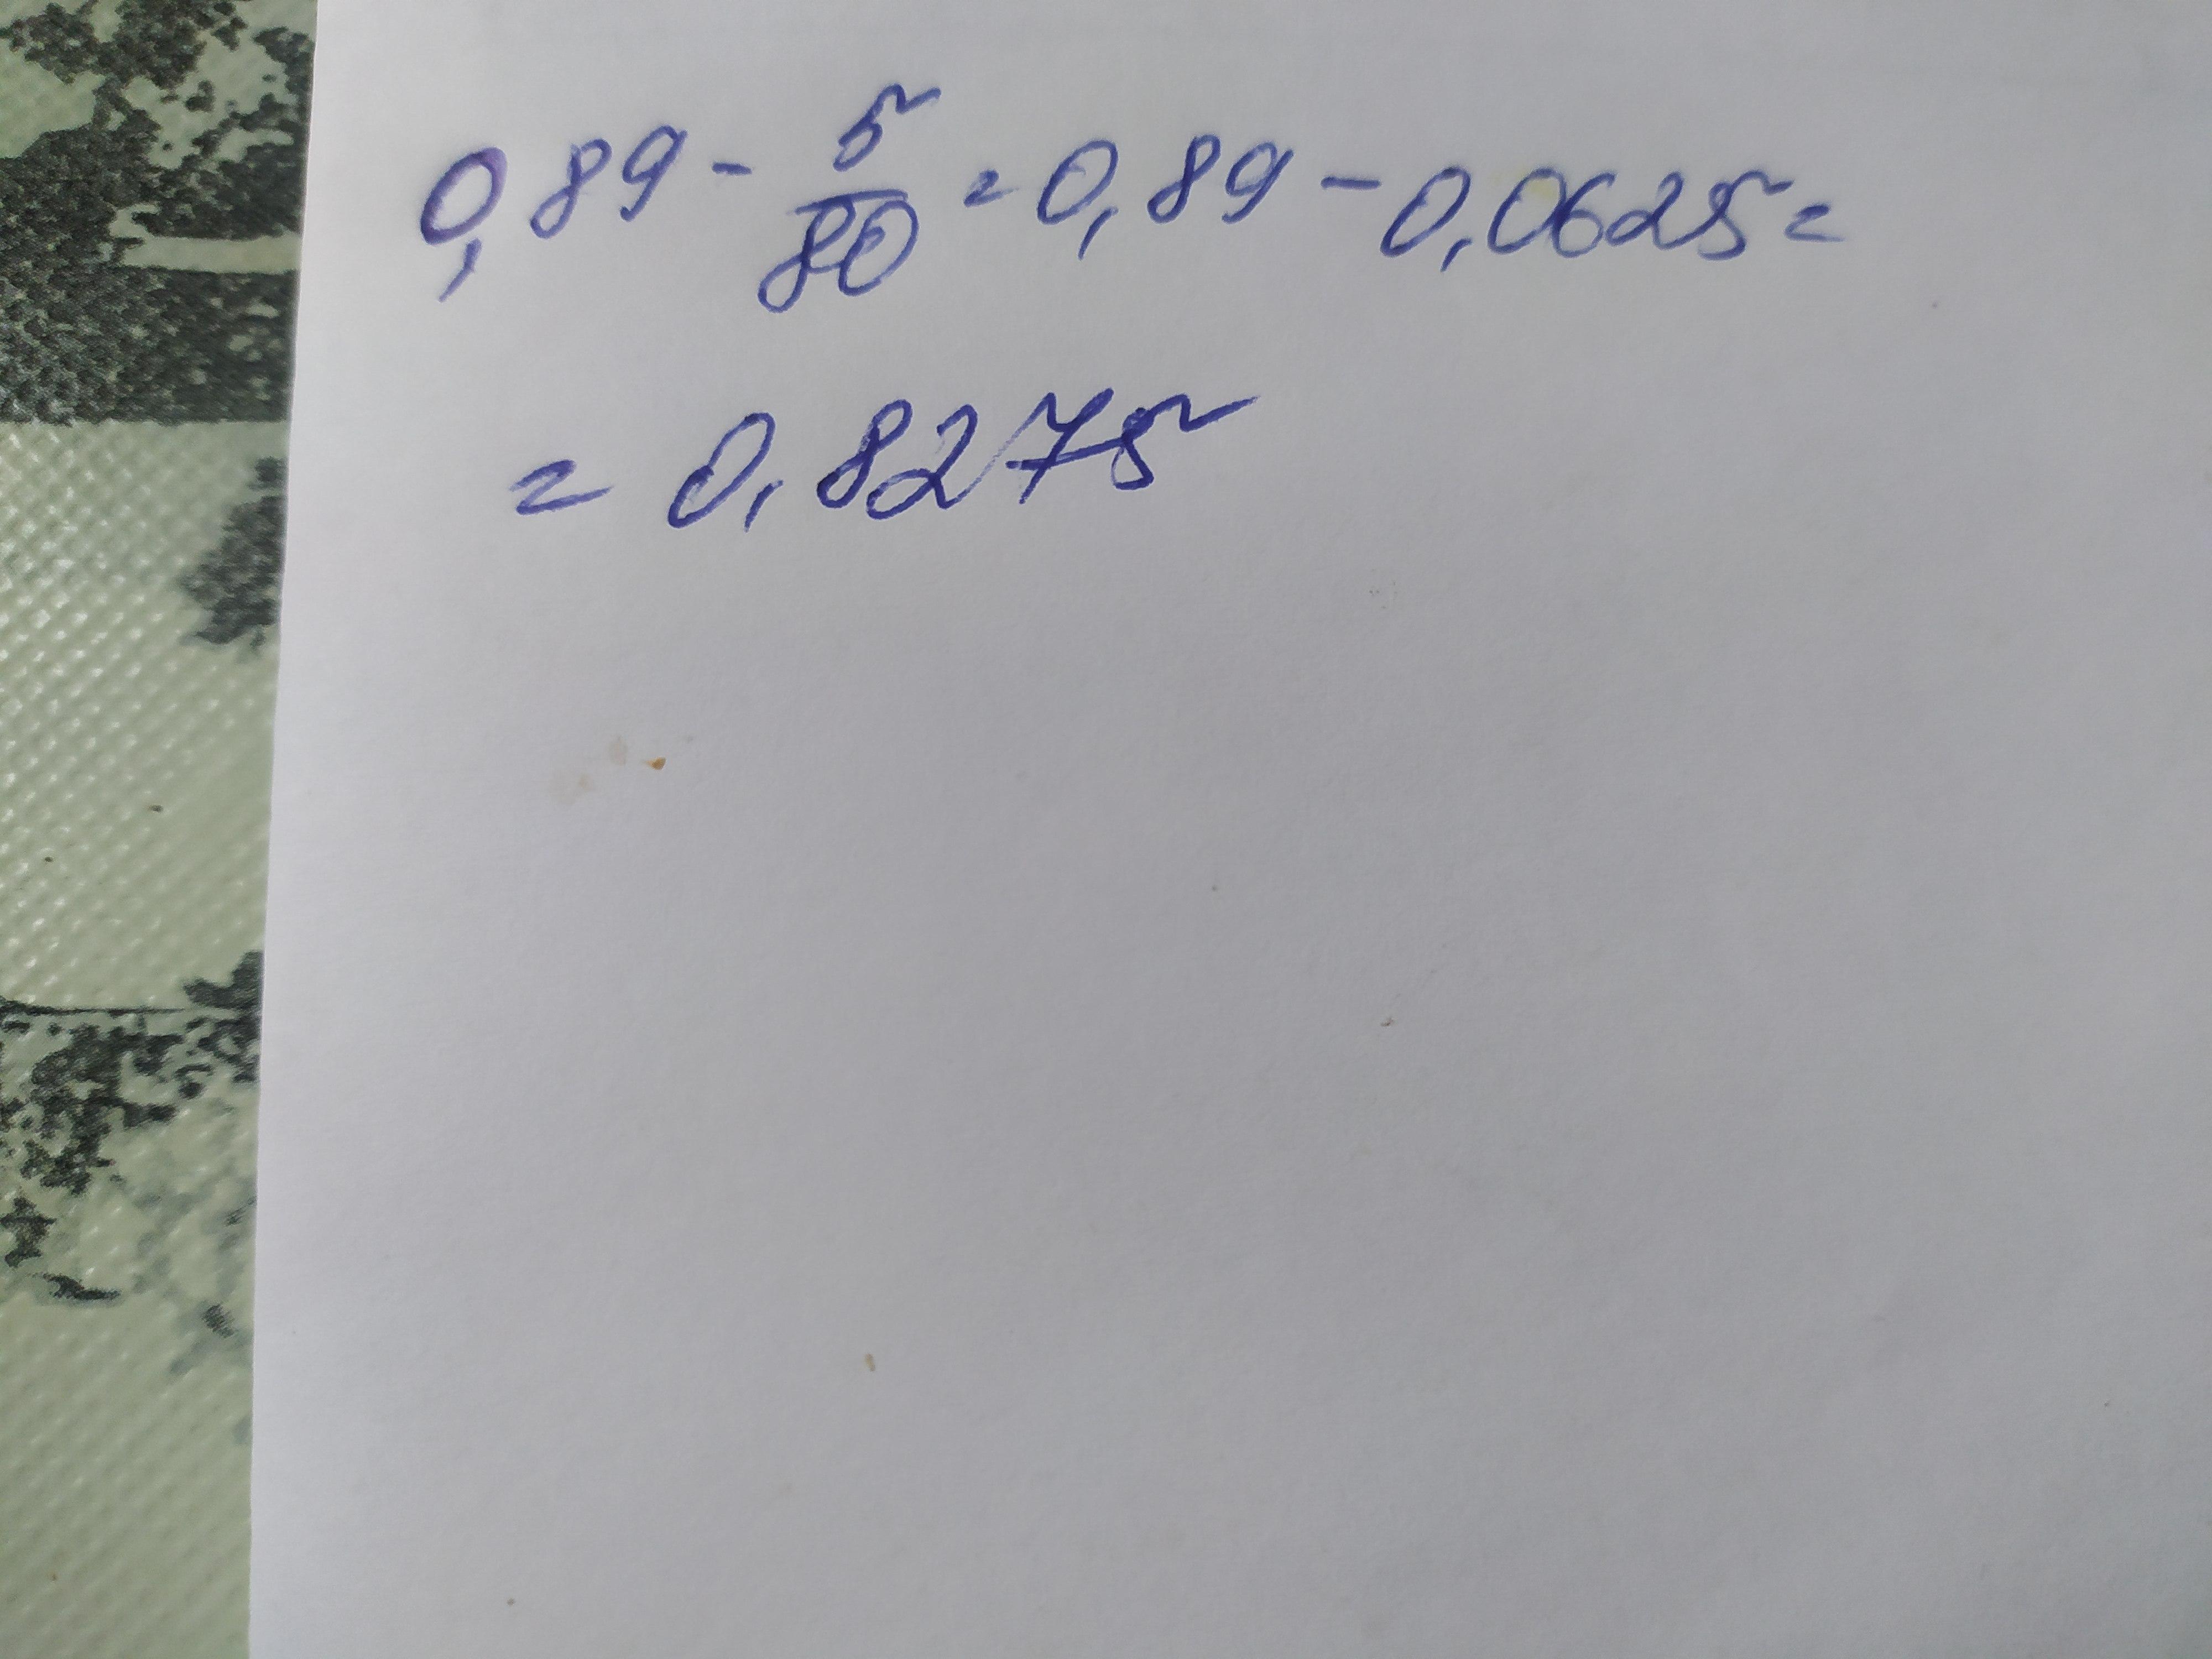 0,89 - 5/80 = 0,89 - 0,0625 =
= 0,8275